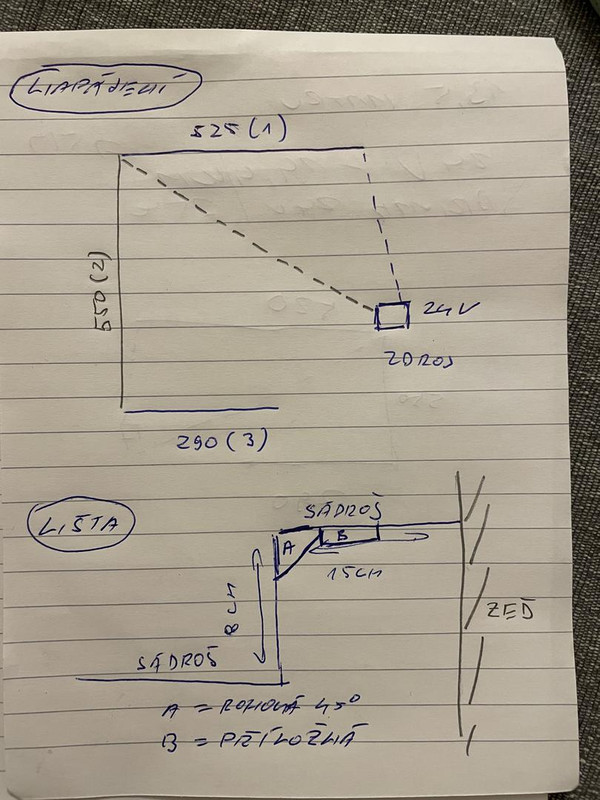 ZAPÁJENÍ
525 (1)
550 (2)
24V
ZDROJ
290 (3)
LIŠTA
SÁDROŠ
A
B
15CM
8CM
ZEĎ
SÁDROŠ
A = ROHOVÁ 45°
B = PŘÍLOŽNÁ